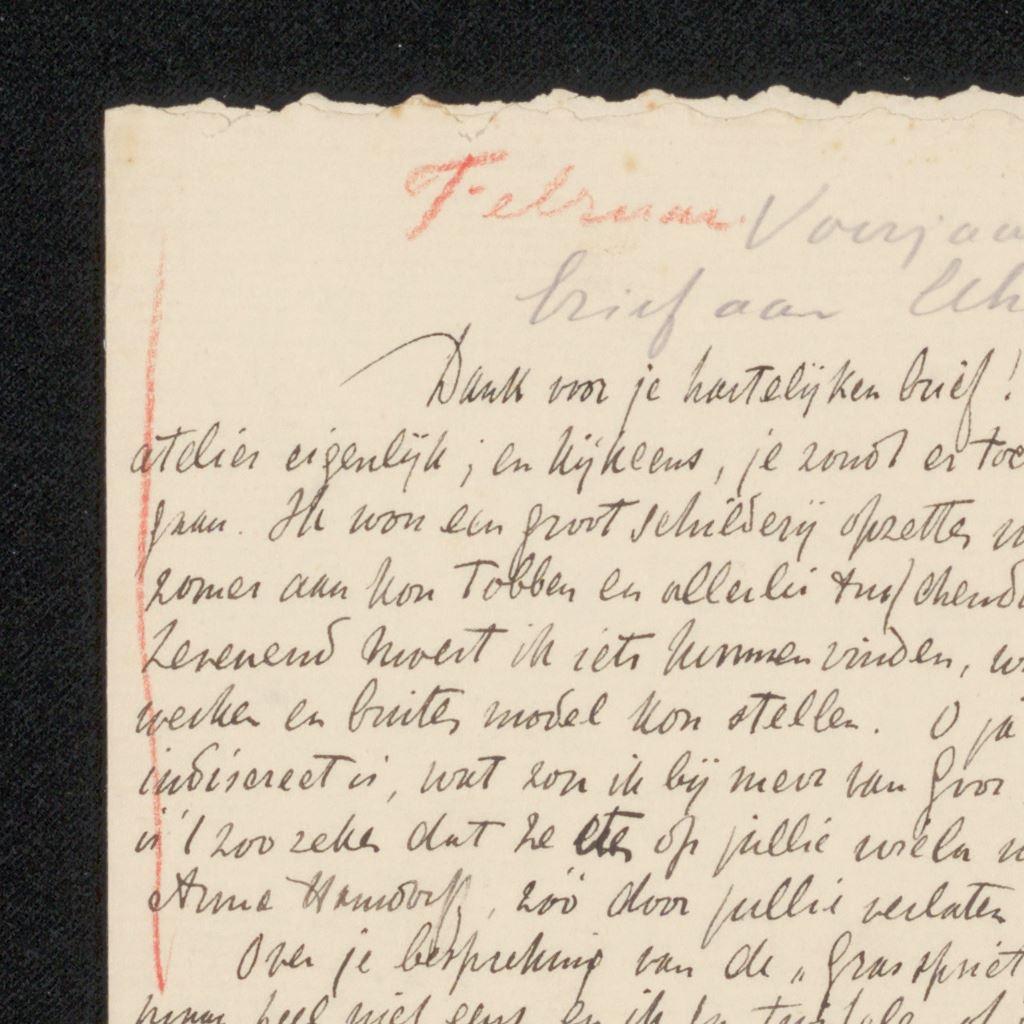 Februar. Voorjaa
brief aan
Dank voor je hartelijken brief!
atelier eigenlijk; en kijk eens, je zoudt er toe
gaan. Ik wou een groot schilderij opzetten
zomer aan kon tobben en allerlei tusschend
Levenend moest ik iets kunnen vinden,
werken en buiten model kon stellen. O ja
indiscreet is, wat zou ik bij mevr van Goor
is 't zoo zeker dat ze eten op jullie
Anna zóó door jullie verlaten
Over je bespreking van de „Grasspriet
heel niet eens en ik